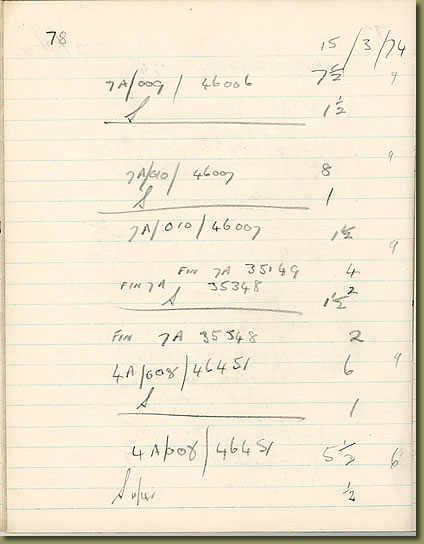 78
15/3/74
7A/009/46006 7½ 9
S 1½
7A/010/46007 8 9
S 1
7A/010/46007 1½
9
FIN 7A 35149 4
FIN 7A 35348 2
S 1½
FIN 7A 35348 2
4A/008/46451 6 9
S 1
4A/008/46451 5½ 6
Super ½